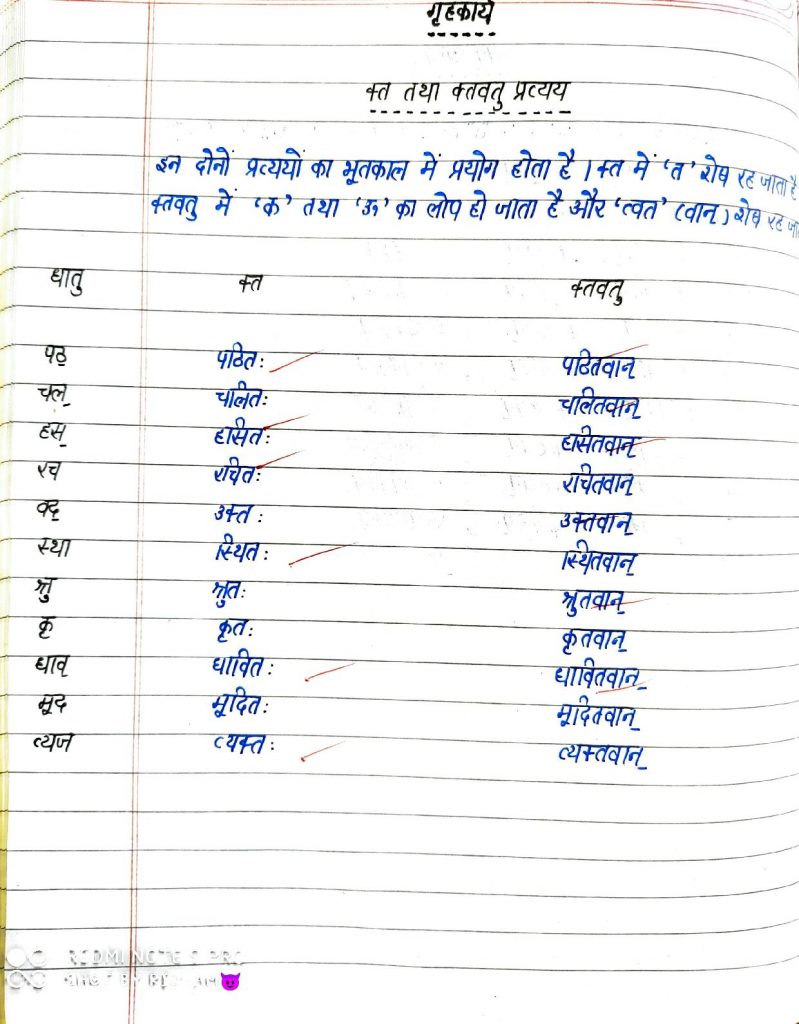 गृहकार्य
क्त तथा क्तवतु प्रत्यय
इन दोनों प्रत्ययों का भूतकाल में प्रयोग होता है । क्त में 'त' शेष रह जाता है
क्तवतु में 'क' तथा 'ऊ' का लोप हो जाता है और 'त्वत' (वान्) शेष रह जा
धातु क्त क्तवतु
पठ् पठितः पठितवान्
चल् चलितः चलितवान्
हस् हसितः हसितवान्
रच रचितः रचितवान्
वद् उक्तः उक्तवान्
स्था स्थितः स्थितवान्
श्रु श्रुतः श्रुतवान्
कृ कृतः कृतवान्
धाव् धावितः धावितवान्
मूद मूदितः मूदितवान्
त्यज त्यक्तः त्यक्तवान्
REDMI NOTE 5 PRO